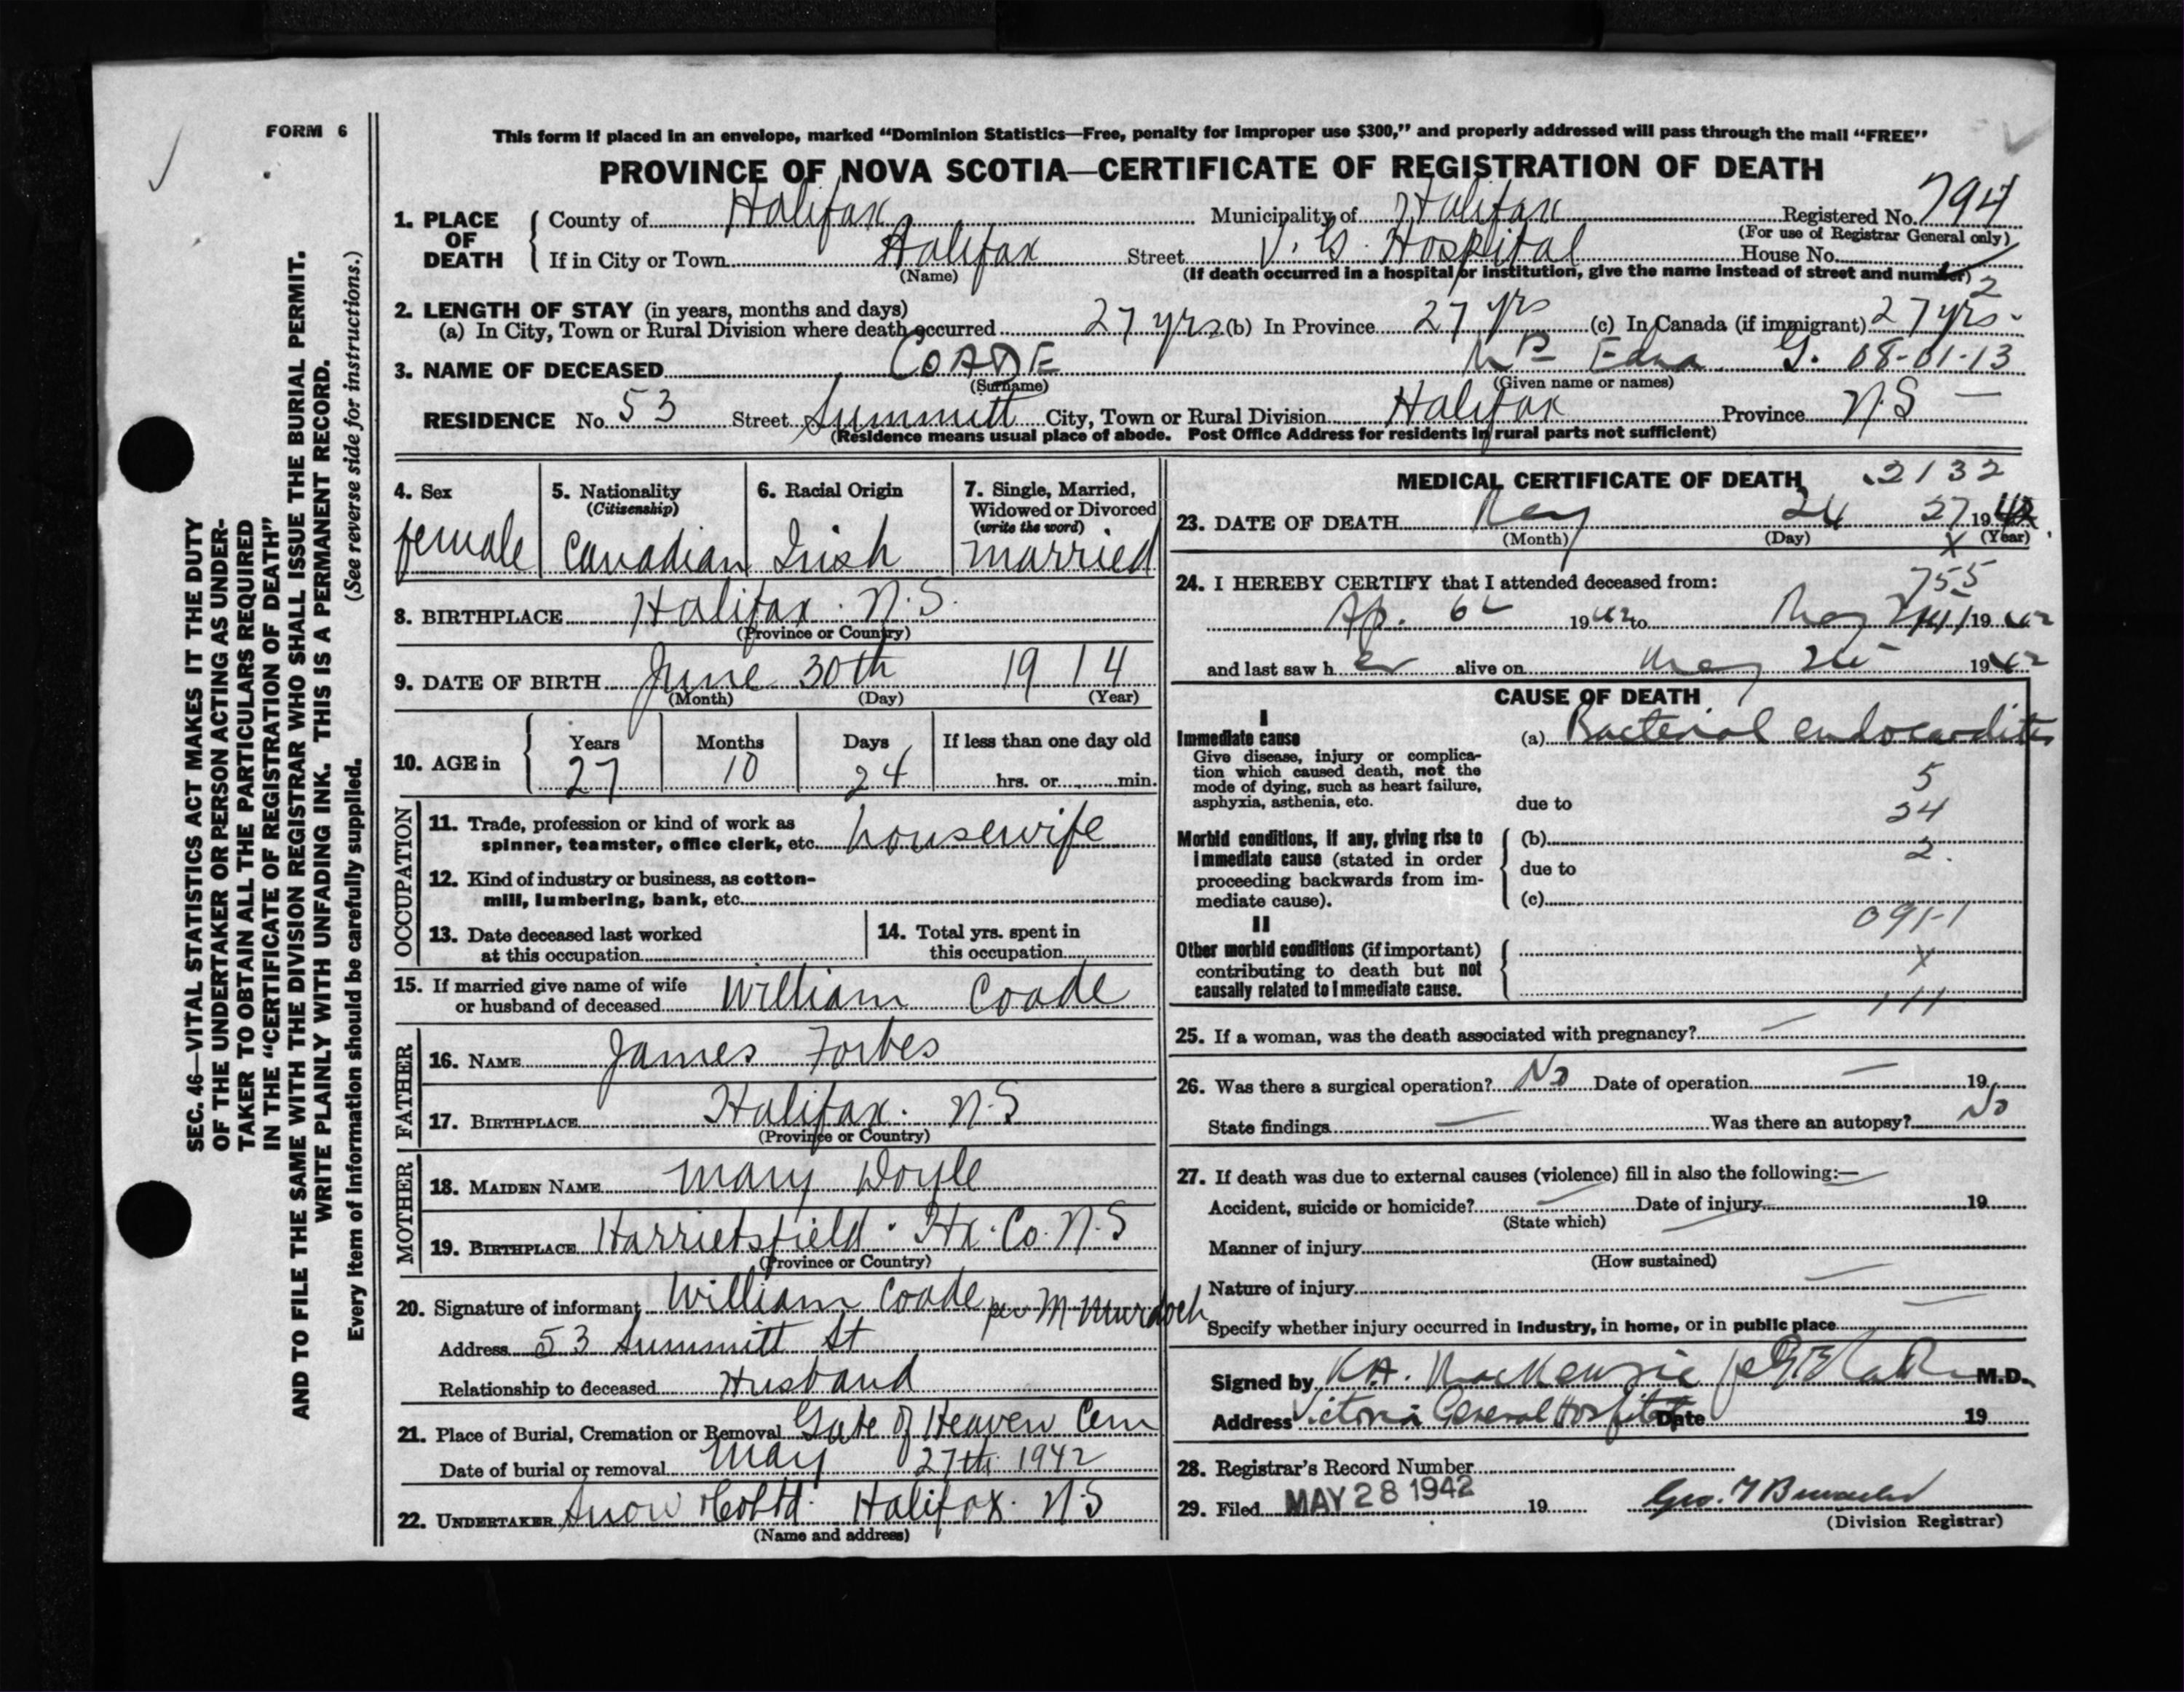 FORM 6
This form if placed in an envelope, marked “Dominion Statistics—Free, penalty for improper use $300,” and properly addressed will pass through the mail “FREE”
PROVINCE OF NOVA SCOTIA—CERTIFICATE OF REGISTRATION OF DEATH
1. PLACE OF DEATH
County of Halifax Municipality of Halifax Registered No. 794
(For use of Registrar General only)
If in City or Town Halifax Street V. G. Hospital House No.
(Name) (If death occurred in a hospital or institution, give the name instead of street and number)
2
2. LENGTH OF STAY (in years, months and days)
(a) In City, Town or Rural Division where death occurred 27 yrs (b) In Province 27 yrs (c) In Canada (if immigrant) 27 yrs.
3. NAME OF DECEASED COADE Edna G. 08-01-13
(Surname) (Given name or names)
RESIDENCE No. 53 Street Summitt City, Town or Rural Division Halifax Province N.S —
(Residence means usual place of abode. Post Office Address for residents in rural parts not sufficient)
4. Sex
female
5. Nationality
(Citizenship)
Canadian
6. Racial Origin
Irish
7. Single, Married,
Widowed or Divorced
(write the word)
married
8. BIRTHPLACE Halifax. N.S.
(Province or Country)
9. DATE OF BIRTH June 30th 1914
(Month) (Day) (Year)
10. AGE in
Years Months Days If less than one day old
27 10 24 hrs. or min.
OCCUPATION
11. Trade, profession or kind of work as
spinner, teamster, office clerk, etc. housewife
12. Kind of industry or business, as cotton-
mill, lumbering, bank, etc.
13. Date deceased last worked
at this occupation
14. Total yrs. spent in
this occupation
15. If married give name of wife
or husband of deceased William Coade
FATHER
16. NAME James Forbes
17. BIRTHPLACE Halifax. N.S
(Province or Country)
MOTHER
18. MAIDEN NAME Mary Doyle
19. BIRTHPLACE Harrietsfield. Hx. Co. N.S
(Province or Country)
20. Signature of informant William Coade per M Murdoch
Address 53 Summitt St
Relationship to deceased Husband
21. Place of Burial, Cremation or Removal Gate of Heaven Cem
Date of burial or removal May 27th 1942
22. UNDERTAKER Snow & Co Ltd. Halifax. N.S
(Name and address)
MEDICAL CERTIFICATE OF DEATH 2132
23. DATE OF DEATH May 24 27 1942
(Month) (Day) (Year)
X
24. I HEREBY CERTIFY that I attended deceased from: 755
Ap. 6 1942 to May 24 1942
and last saw h er alive on May 24 1942
CAUSE OF DEATH
I
Immediate cause
Give disease, injury or complica-
tion which caused death, not the
mode of dying, such as heart failure,
asphyxia, asthenia, etc.
(a) Bacterial endocarditis
5
due to 24
Morbid conditions, if any, giving rise to
immediate cause (stated in order
proceeding backwards from im-
mediate cause).
(b) 2.
due to
(c)
091-1
II
Other morbid conditions (if important)
contributing to death but not
causally related to immediate cause.
X
111
25. If a woman, was the death associated with pregnancy? —
26. Was there a surgical operation? No Date of operation — 19
State findings — Was there an autopsy? No
27. If death was due to external causes (violence) fill in also the following:—
Accident, suicide or homicide? — Date of injury 19
(State which)
Manner of injury
(How sustained)
Nature of injury —
Specify whether injury occurred in industry, in home, or in public place —
Signed by K.A. MacKenzie M.D.
Address Victoria General Hospital Date 19
28. Registrar’s Record Number
29. Filed MAY 28 1942 19 Geo.
(Division Registrar)
SEC. 46—VITAL STATISTICS ACT MAKES IT THE DUTY
OF THE UNDERTAKER OR PERSON ACTING AS UNDER-
TAKER TO OBTAIN ALL THE PARTICULARS REQUIRED
IN THE “CERTIFICATE OF REGISTRATION OF DEATH”
AND TO FILE THE SAME WITH THE DIVISION REGISTRAR WHO SHALL ISSUE THE BURIAL PERMIT.
WRITE PLAINLY WITH UNFADING INK. THIS IS A PERMANENT RECORD.
Every item of information should be carefully supplied. (See reverse side for instructions.)